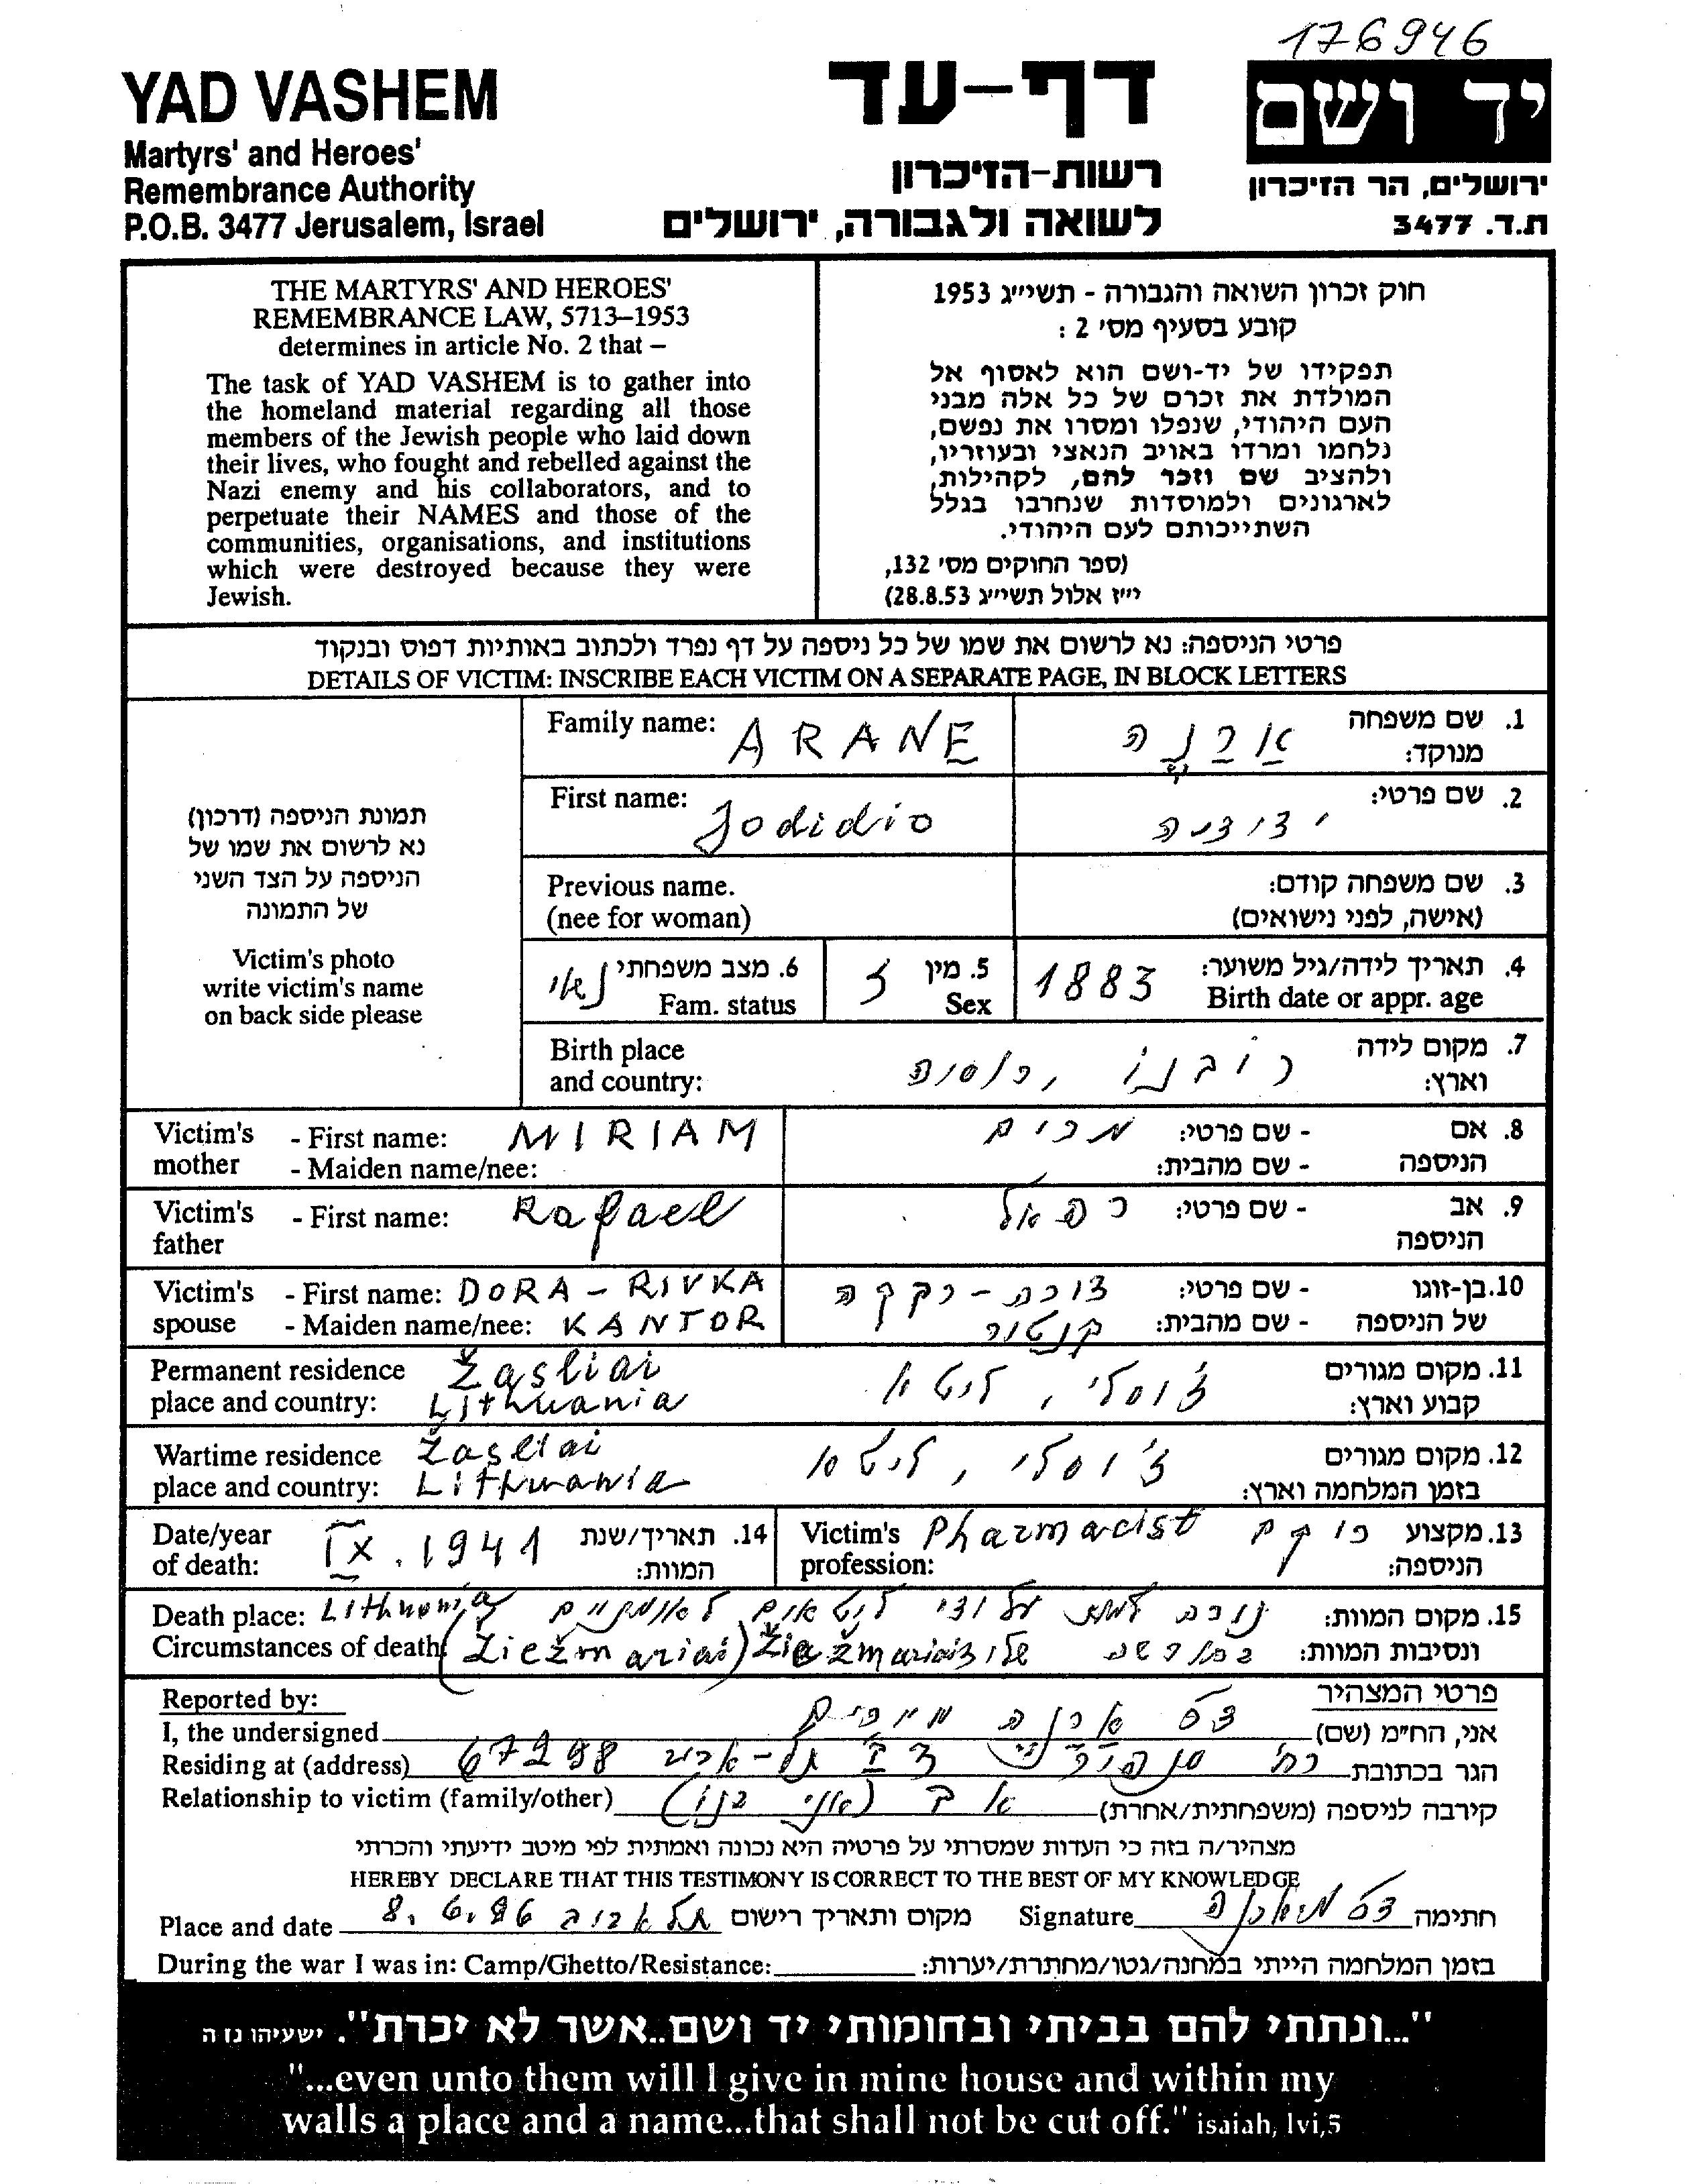 176946
YAD VASHEM
Martyrs' and Heroes'
Remembrance Authority
P.O.B. 3477 Jerusalem, Israel
דף-עד
רשות-הזיכרון
לשואה ולגבורה, ירושלים
יד ושם
ירושלים, הר הזיכרון
ת.ד. 3477
THE MARTYRS' AND HEROES'
REMEMBRANCE LAW, 5713–1953
determines in article No. 2 that –
The task of YAD VASHEM is to gather into
the homeland material regarding all those
members of the Jewish people who laid down
their lives, who fought and rebelled against the
Nazi enemy and his collaborators, and to
perpetuate their NAMES and those of the
communities, organisations, and institutions
which were destroyed because they were
Jewish.
חוק זכרון השואה והגבורה - תשי״ג 1953
קובע בסעיף מס׳ 2 :
תפקידו של יד-ושם הוא לאסוף אל
המולדת את זכרם של כל אלה מבני
העם היהודי, שנפלו ומסרו את נפשם,
נלחמו ומרדו באויב הנאצי ובעוזריו,
ולהציב שם וזכר להם, לקהילות,
לארגונים ולמוסדות שנחרבו בגלל
השתייכותם לעם היהודי.
(ספר החוקים מס׳ 132,
י״ז אלול תשי״ג 28.8.53)
פרטי הניספה: נא לרשום את שמו של כל ניספה על דף נפרד ולכתוב באותיות דפוס ובנקוד
DETAILS OF VICTIM: INSCRIBE EACH VICTIM ON A SEPARATE PAGE, IN BLOCK LETTERS
תמונת הניספה (דרכון)
נא לרשום את שמו של
הניספה על הצד השני
של התמונה
Victim's photo
write victim's name
on back side please
Family name: ARANE
1. שם משפחה מנוקד: ארנה
First name: Jodidio
2. שם פרטי: ידידיה
Previous name.
(nee for woman)
3. שם משפחה קודם:
(אישה, לפני נישואים)
4. תאריך לידה/גיל משוער: 1883
Birth date or appr. age
5. מין ז
Sex
6. מצב משפחתי נשוי
Fam. status
Birth place
and country:
7. מקום לידה
וארץ: רובנו, רוסיה
Victim's mother - First name: MIRIAM
- Maiden name/nee:
8. אם הניספה - שם פרטי: מרים
- שם מהבית:
Victim's father - First name: Rafael
9. אב הניספה - שם פרטי: רפאל
Victim's spouse - First name: DORA - RIVKA
- Maiden name/nee: KANTOR
10. בן-זוגו של הניספה - שם פרטי: דורה-רבקה
- שם מהבית: קנטור
Permanent residence Žasliai
place and country: Lithuania
11. מקום מגורים
קבוע וארץ: ז׳וסלי, ליטא
Wartime residence Žasliai
place and country: Lithuania
12. מקום מגורים
בזמן המלחמה וארץ: ז׳וסלי, ליטא
Date/year
of death: IX.1941
14. תאריך/שנת
המוות:
Victim's Pharmacist
profession:
13. מקצוע רוקח
הניספה:
Death place: Lithuania
Circumstances of death (Žiežmariai) Žiežmariai
15. מקום המוות: על ידי ליטאים
ונסיבות המוות:
Reported by:
פרטי המצהיר
I, the undersigned
אני, הח״מ (שם) ארנה
Residing at (address) 67298 תל-אביב
הגר בכתובת רח׳
Relationship to victim (family/other)
קירבה לניספה (משפחתית/אחרת) אב (אני בנו)
מצהיר/ה בזה כי העדות שמסרתי על פרטיה היא נכונה ואמתית לפי מיטב ידיעתי והכרתי
HEREBY DECLARE THAT THIS TESTIMONY IS CORRECT TO THE BEST OF MY KNOWLEDGE
Place and date 8.6.96 תל אביב מקום ותאריך רישום
Signature חתימה
During the war I was in: Camp/Ghetto/Resistance:
בזמן המלחמה הייתי במחנה/גטו/מחתרת/יערות:
"...ונתתי להם בביתי ובחומותי יד ושם..אשר לא יכרת". ישעיהו נו ה
"...even unto them will I give in mine house and within my
walls a place and a name...that shall not be cut off." isaiah, lvi,5